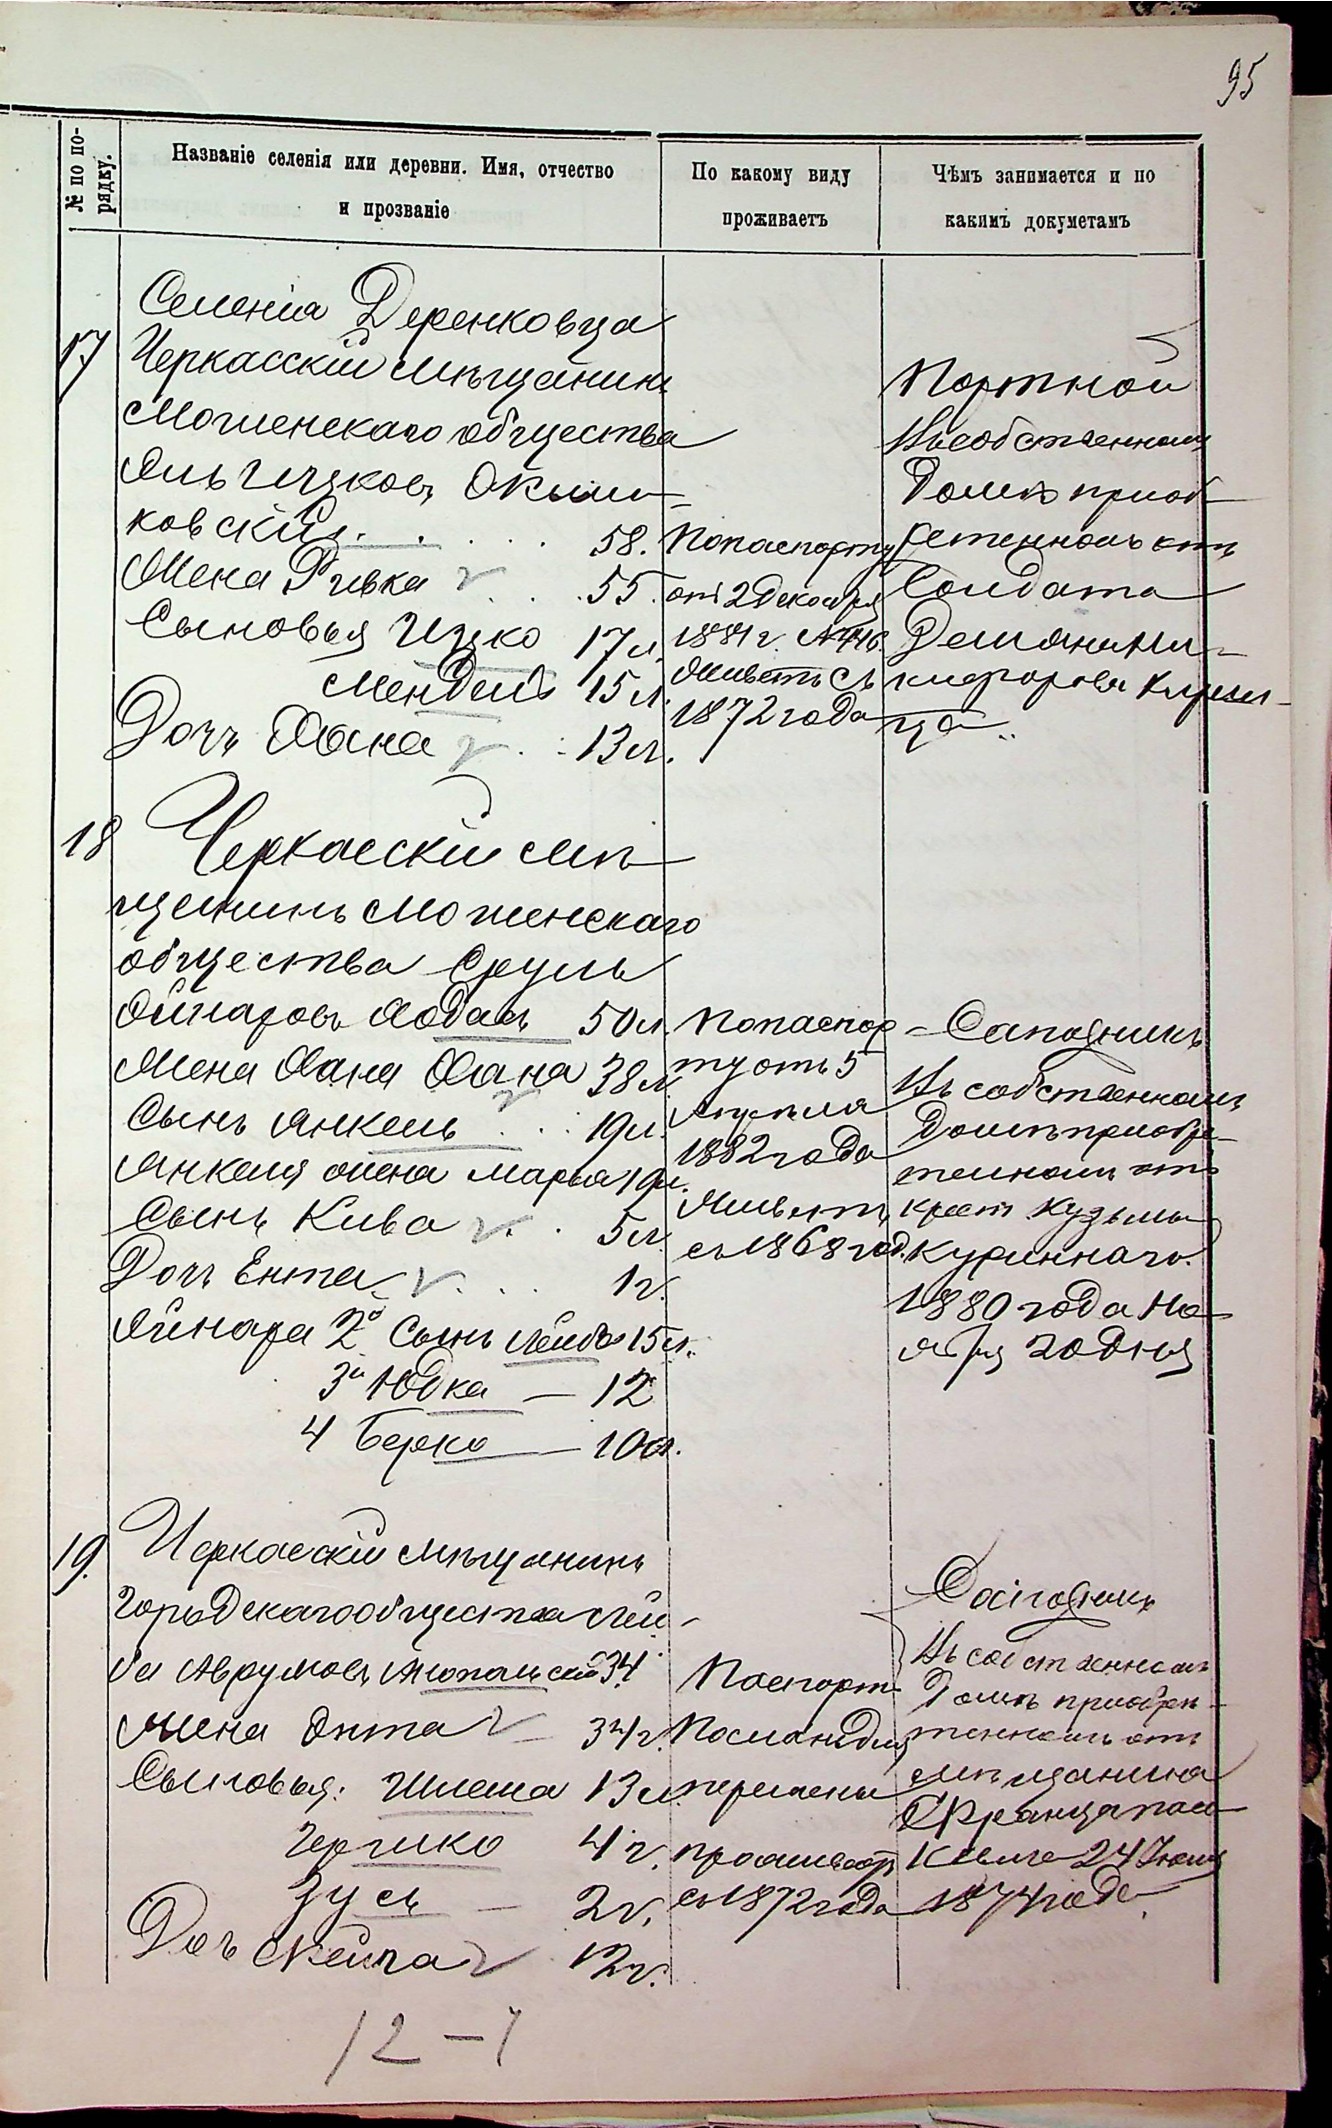 95
№ по по-
рядку.
Названіе селенія или деревни. Имя, отчество
и прозваніе
По какому виду
проживаетъ
Чѣмъ занимается и по
какимъ докуметамъ
Селенiя Деренковца
17 Черкасскій мѣщанинъ
Мошенскаго общества
Ицковъ
ковскій 58.
Жена Ривка 55.
Сыновья Ицко 17 л.
Мендель 15 л.
Дочь Хана 13 л.
По паспорту
отъ 2 Декабря
1881 г. №
Живетъ съ
1872 года
Портной
Въ собственномъ
Домѣ приоб-
ретенномъ отъ
Солдата
Демяна Ни-
кифорова
ца
18 Черкасскій мѣ-
щанинъ Мошенскаго
общества Сруль
50 л.
Жена Хана 38 л.
Сынъ Янкель 19 л.
Янкеля жена Марья 19 л.
Сынъ Кива 5 л.
Дочь Ента 1 г.
Айнара 2й Сынъ Лейба 15 л.
3й Юдка — 12
4 Берко — 10 л.
По паспор-
ту отъ 5
Апреля
1882 года
Живетъ
съ 1868 год.
Сапожникъ
Въ собственномъ
Домѣ приобре-
тенномъ отъ
крест. Кузьмы
Куриннаго.
1880 года Но-
ября 20 дня
19. Черкасскій мѣщанинъ
Городскаго общества Лей-
ба Аврумовъ 34
Жена Энта 34 г.
Сыновья: Шлема 13 л.
Гершко 4 г.
Зусь — 2 г.
Дочь Хейпа 12 г.
Паспортъ
Посланъ для
перемены
проживаетъ
съ 1872 года
Сапожникъ
Въ собственномъ
Домѣ приобре-
тенномъ отъ
мѣщанина
Франца
24 Июня
1874 года.
12 – 7